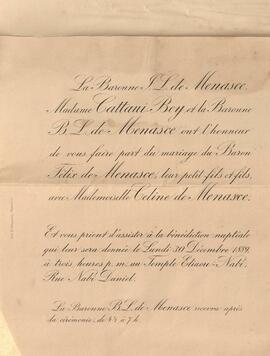 La Baronne J. L. de Menasce,
Madame Cattaui Bey et la Baronne
B. L. de Menasce ont l'honneur
de vous faire part du mariage du Baron
Félix de Menasce, leur petit-fils et fils,
avec Mademoiselle Céline de Menasce.
Et vous prient d'assister à la bénédiction nuptiale
qui leur sera donnée le Lundi 30 Décembre 1889,
à trois heures p. m. au Temple Eliaou-Nabi,
Rue Nabi Daniel.
La Baronne B. L. de Menasce recevra après
la cérémonie, de 4 à 7 h.